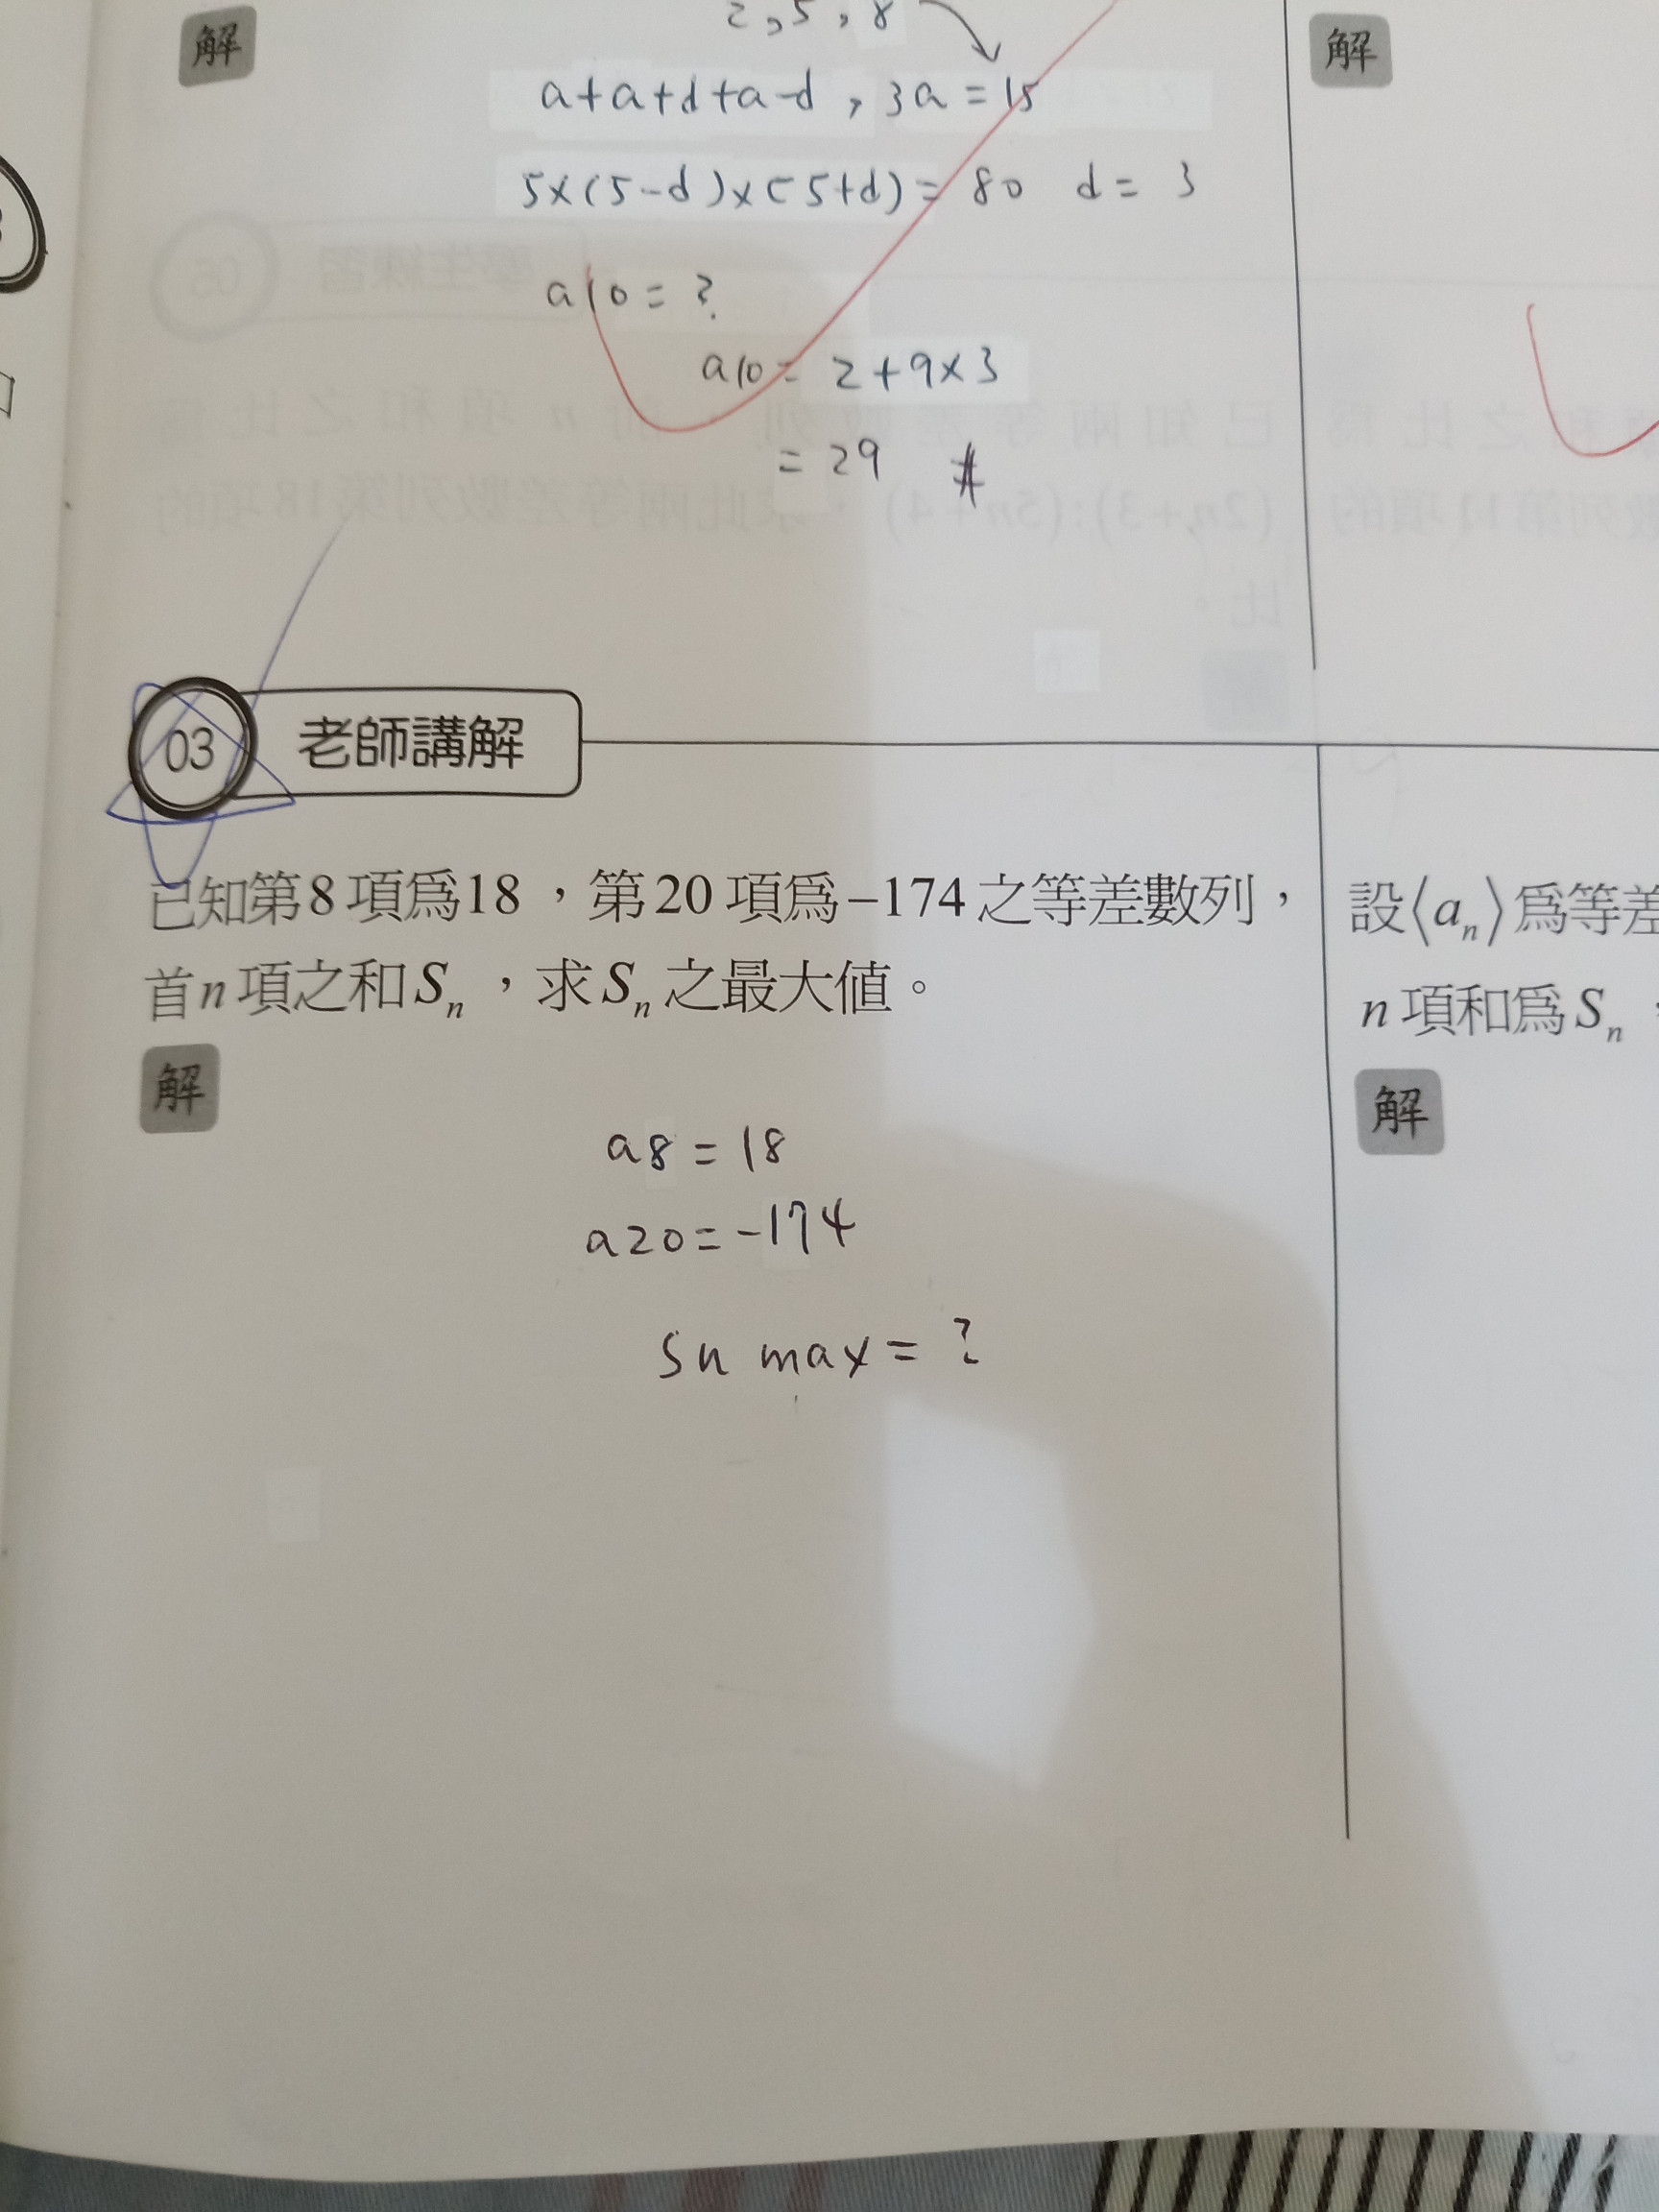 2,5,8
解
解
a+a+d+a-d,3a=15
5×(5-d)×(5+d)=80 d=3
a10=?
a10=2+9×3
=29 #
03 老師講解
已知第8項爲18,第20項爲−174之等差數列,
首n項之和Sn,求Sn之最大值。
解
a8=18
a20=-174
Sn max=?
設⟨an⟩爲等差
n項和爲Sn,
解